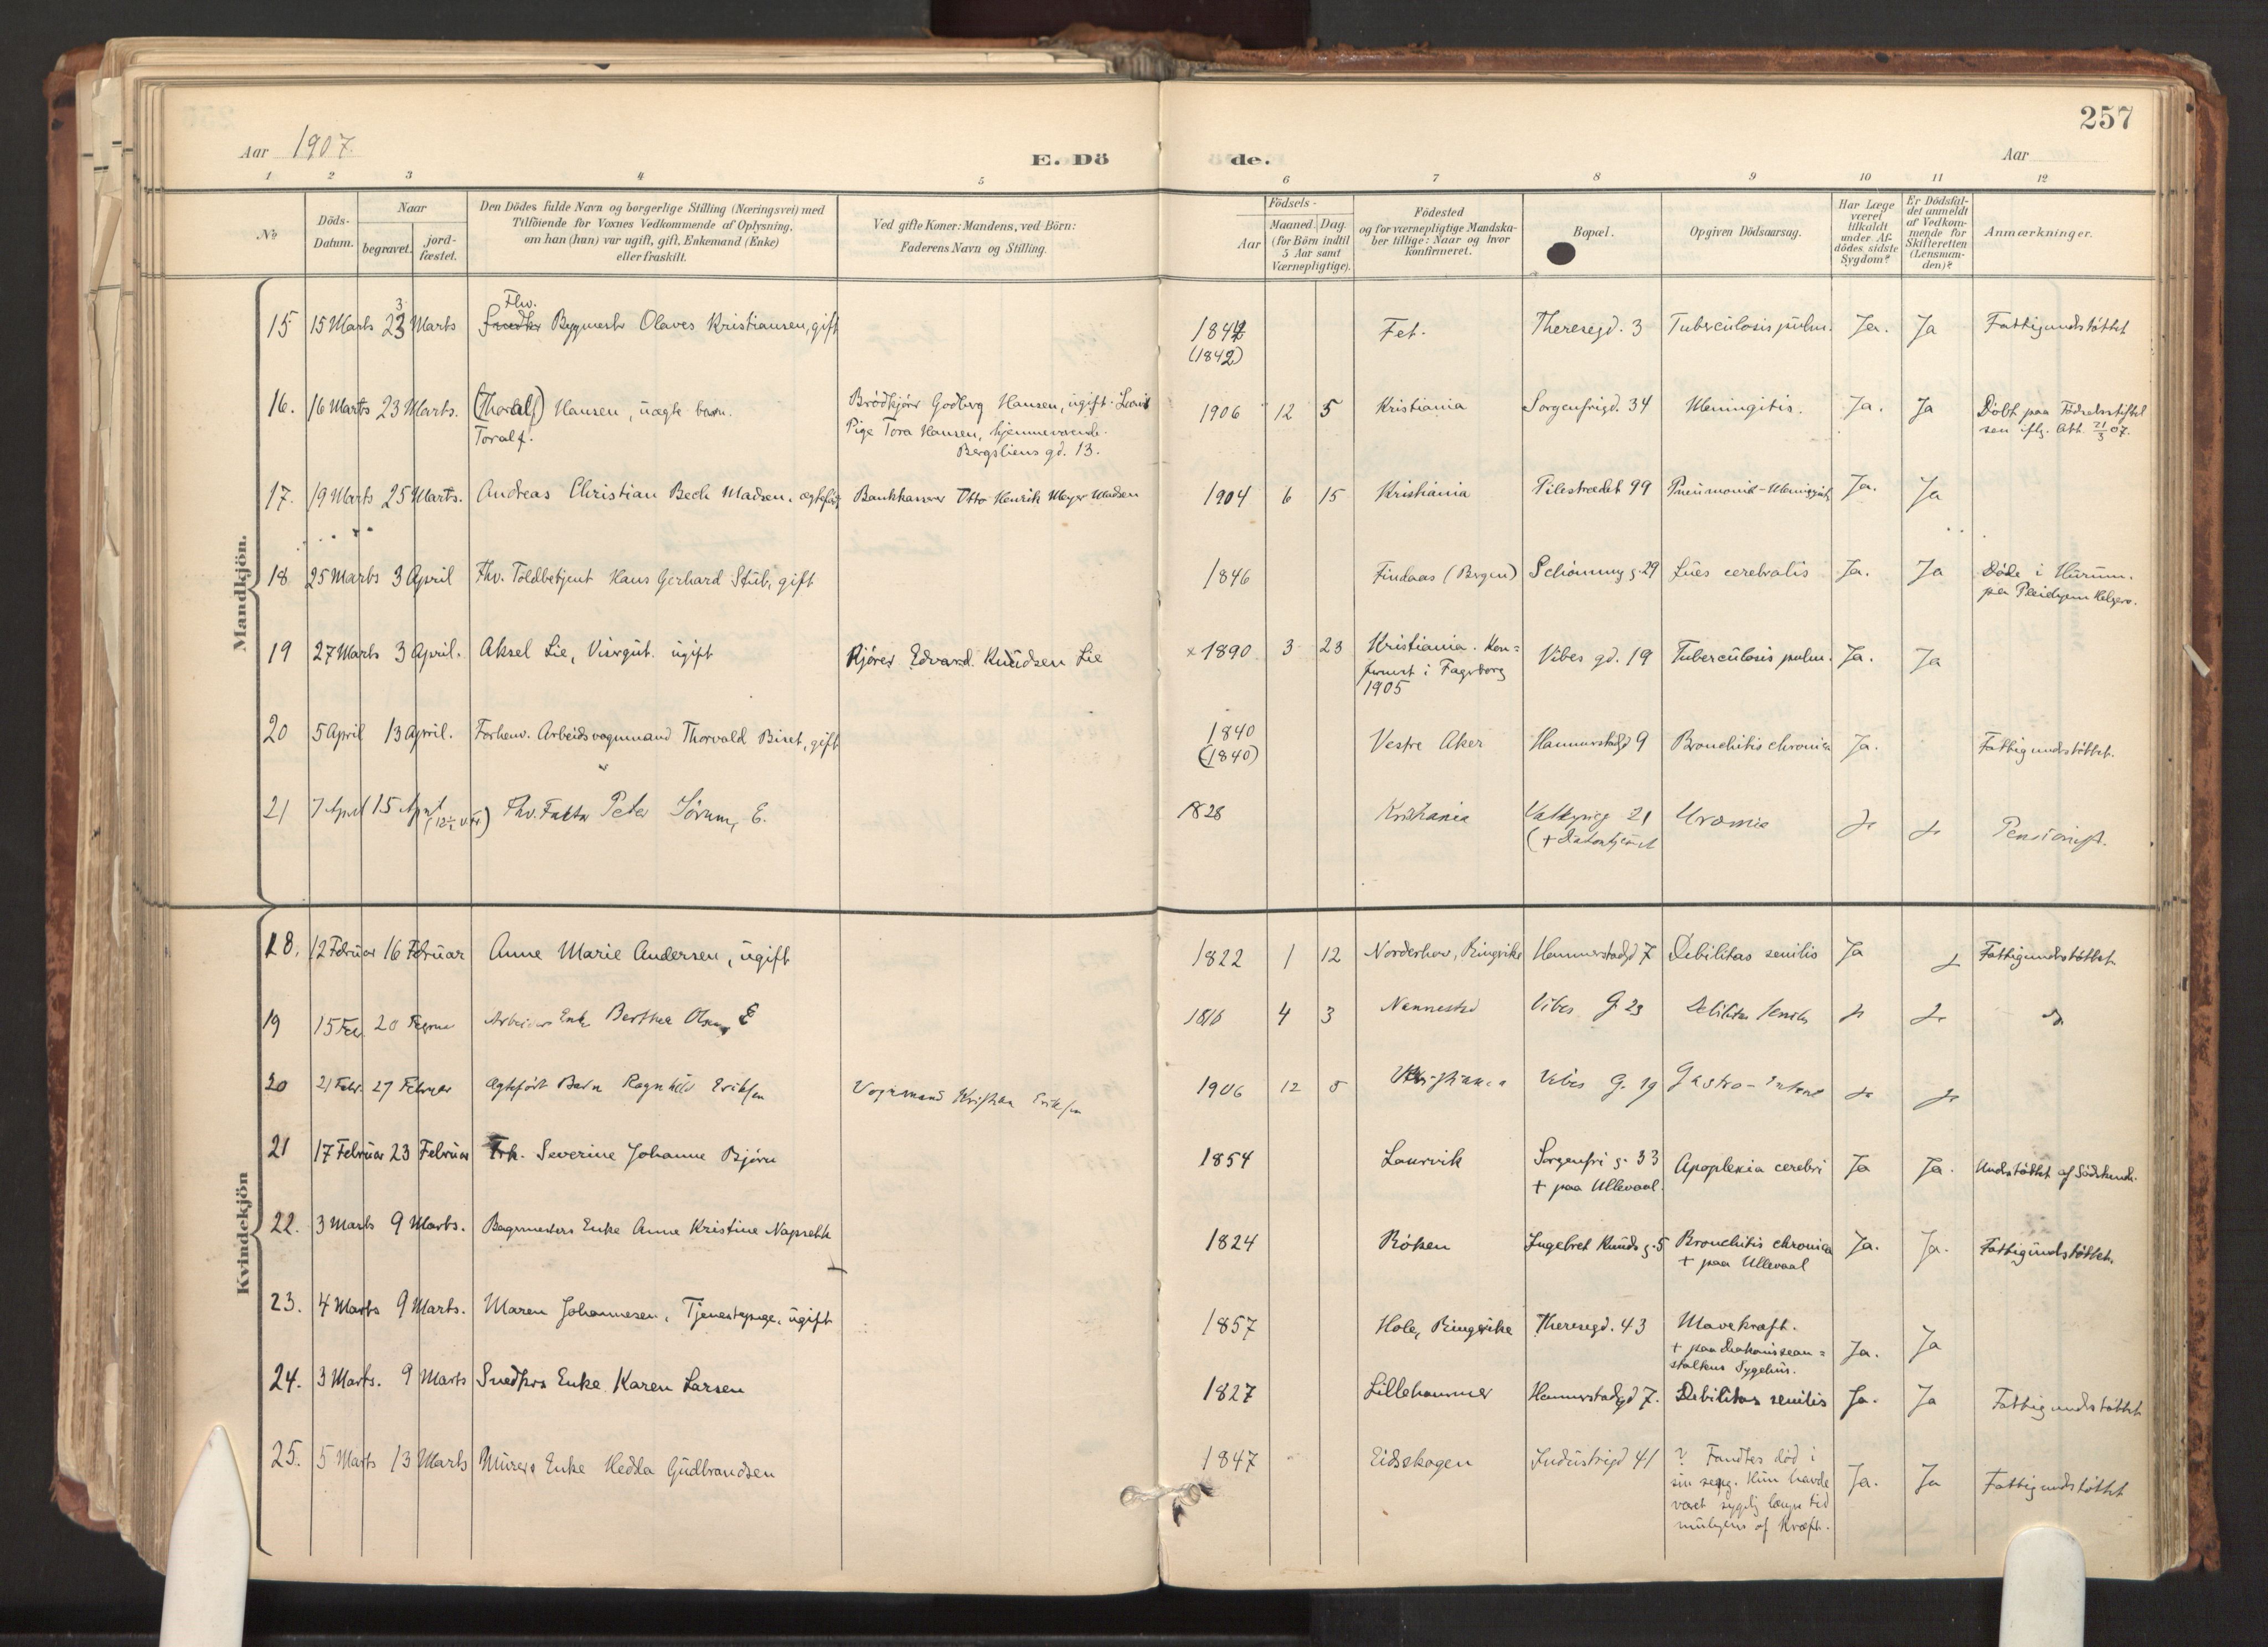 257
Aar 1907.
E. Dö de.
Aar
1 2 3 4 5 6 7 8 9 10 11 12
No
Döds-
Datum.
Naar
begravet.
jord-
fæstet.
Den Dödes fulde Navn og borgerlige Stilling (Næringsvei) med
Tilföiende for Voxnes Vedkommende af Oplysning,
om han (hun) var ugift, gift, Enkemand (Enke)
eller fraskilt.
Ved gifte Koner: Mandens, ved Börn:
Faderens Navn og Stilling.
Födsels-
Aar
Maaned. Dag.
(for Börn indtil
5 Aar samt
Værnepligtige).
Födested
og for værnepligtige Mandska-
ber tillige: Naar og hvor
konfirmeret.
Bopæl.
Opgiven Dödsaarsag.
Har Læge
været
tilkaldt
under Af-
dödes sidste
Sygdom?
Er Dödsfal-
det anmeldt
af Vedkom-
mende for
Skifteretten
(Lensman-
den)?
Anmærkninger.
Mandkjön.
Fhv.
15 15 Marts 23 Marts Snedker Bygmestr Olaves Kristiansen, gift 1842 Fet. Theresegd. 3 Tuberculosis pulm. Ja. Ja Fattigunderstöttet
(1842)
16. 16 Marts 23 Marts. (Thoralf) Hansen, uægte barn. Brödkjörer Godberg Hansen, ugift. 1906 12 5 Kristiania Sorgenfrigd. 34 Meningitis. Ja. Ja Döbt paa Födselsstiftel
Toralf. Pige Tora Hansen, hjemmeværende. sen iflg. Att. 21/3 07.
Bergsliens gd. 13.
17. 19 Marts 25 Marts. Andreas Christian Bech Madsen, ægtefödt Bankkasserer Otto Henrik Meyer Madsen 1904 6 15 Kristiania Pilestrædet 99 Pneumonia-Meningitis Ja. Ja
18 25 Marts 3 April Fhv. Toldbetjent Hans Gerhard Stub, gift 1846 Findaas (Bergen) Schönning g. 29 Lues cerebralis Ja. Ja Döde i Hurum.
paa Pleiehjem
19 27 Marts 3 April. Aksel Lie, Visergut. ugift Kjörer Edvard Knudsen Lie × 1890 3 23 Kristiania. Kon= Vibes gd. 19 Tuberculosis pulm. Ja. Ja
firmert i Fagerborg
1905
20 5 April 13 April. Forhenv. Arbeidsvognmand Thorvald Biset, gift 1840 Vestre Aker Hammerstadgd 9 Bronchitis chronica Ja. Fattigunderstöttet.
(1840)
21 7 April 15 April Fhv. Faktor Peter Sörum, E. 1828 Kristiania Valkyrieg 21 Uræmia Ja Ja Pensionist.
(+ Diakonhjemmet
Kvindekjön
18. 12 Februar 16 Februar Anne Marie Andersen, ugift 1822 1 12 Norderhov, Ringerike Hammerstadgd 7 Debilitas senilis Ja Ja Fattigunderstöttet
19 15 Feb. 20 Februar Arbeiders Enke Berthea Olsen, E 1816 4 3 Nannestad Vibes G 23 Debilitas senilis Ja Ja do.
20 21 Febr. 27 Februar Ægtefödt Barn Ragnhild Eriksen Vognmand Kristian Eriksen 1906 12 5 Kristiania Vibes G. 19 Gastro-Ja Ja
21 17 Februar 23 Februar Frk. Severine Johanne Björn 1854 Laurvik Sorgenfri g. 33 Apoplexia cerebri Ja Ja. Understöttet af
+ paa Ullevaal.
22. 3 Marts 9 Marts. Bagermesters Enke Anne Kristine Naprsetk 1824 Röken Ingebret Knuds g. 5 Bronchitis chronica Ja. Ja. Fattigunderstöttet.
+ paa Ullevaal
23. 4 Marts 9 Marts. Maren Johannesen, Tjenestepige, ugift 1857 Hole, Ringerike Theresegd. 43 Mavekræft. Ja. Ja
+ paa Diakonissean=
staltens Sygehus.
24. 3 Marts. 9 Marts Snedkers Enke Karen Larsen 1827 Lillehammer Hammerstadgd 7. Debilitas senilis Ja. Ja Fattigunderstöttet
25. 5 Marts 13 Marts Murers Enke Hedda Gudbrandsen 1847 Eidsskogen Industrigd 41 ? Fandtes död i Ja. Ja Fattigunderstöttet
sin seng. Hun havde
været sygelig længre tid
muligens af Kræft.